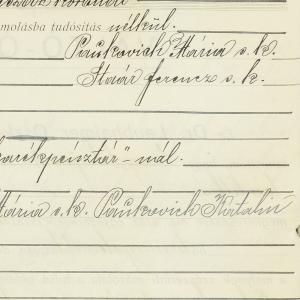 molásba tudósitás nélkül.
Paukovich Mária s. k.
Staár ferencz s. k.
arékpénztár"-nál.
Mária s. k. Paukovich Katalin